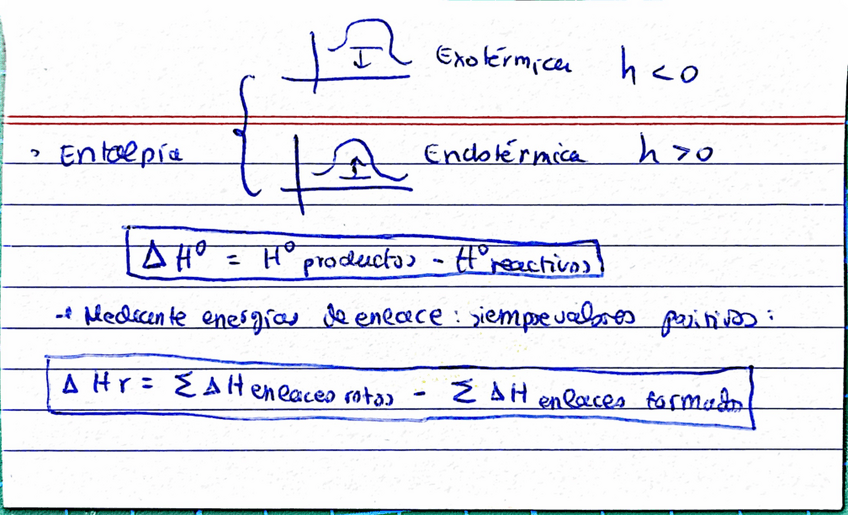 Exotérmica h < 0
> Entalpía
Endotérmica h > 0
Δ H⁰ = H⁰ productos - H⁰ reactivos
→ Mediante energías de enlace: siempre valores positivos:
Δ Hr = Σ ΔH enlaces rotos - Σ ΔH enlaces formados